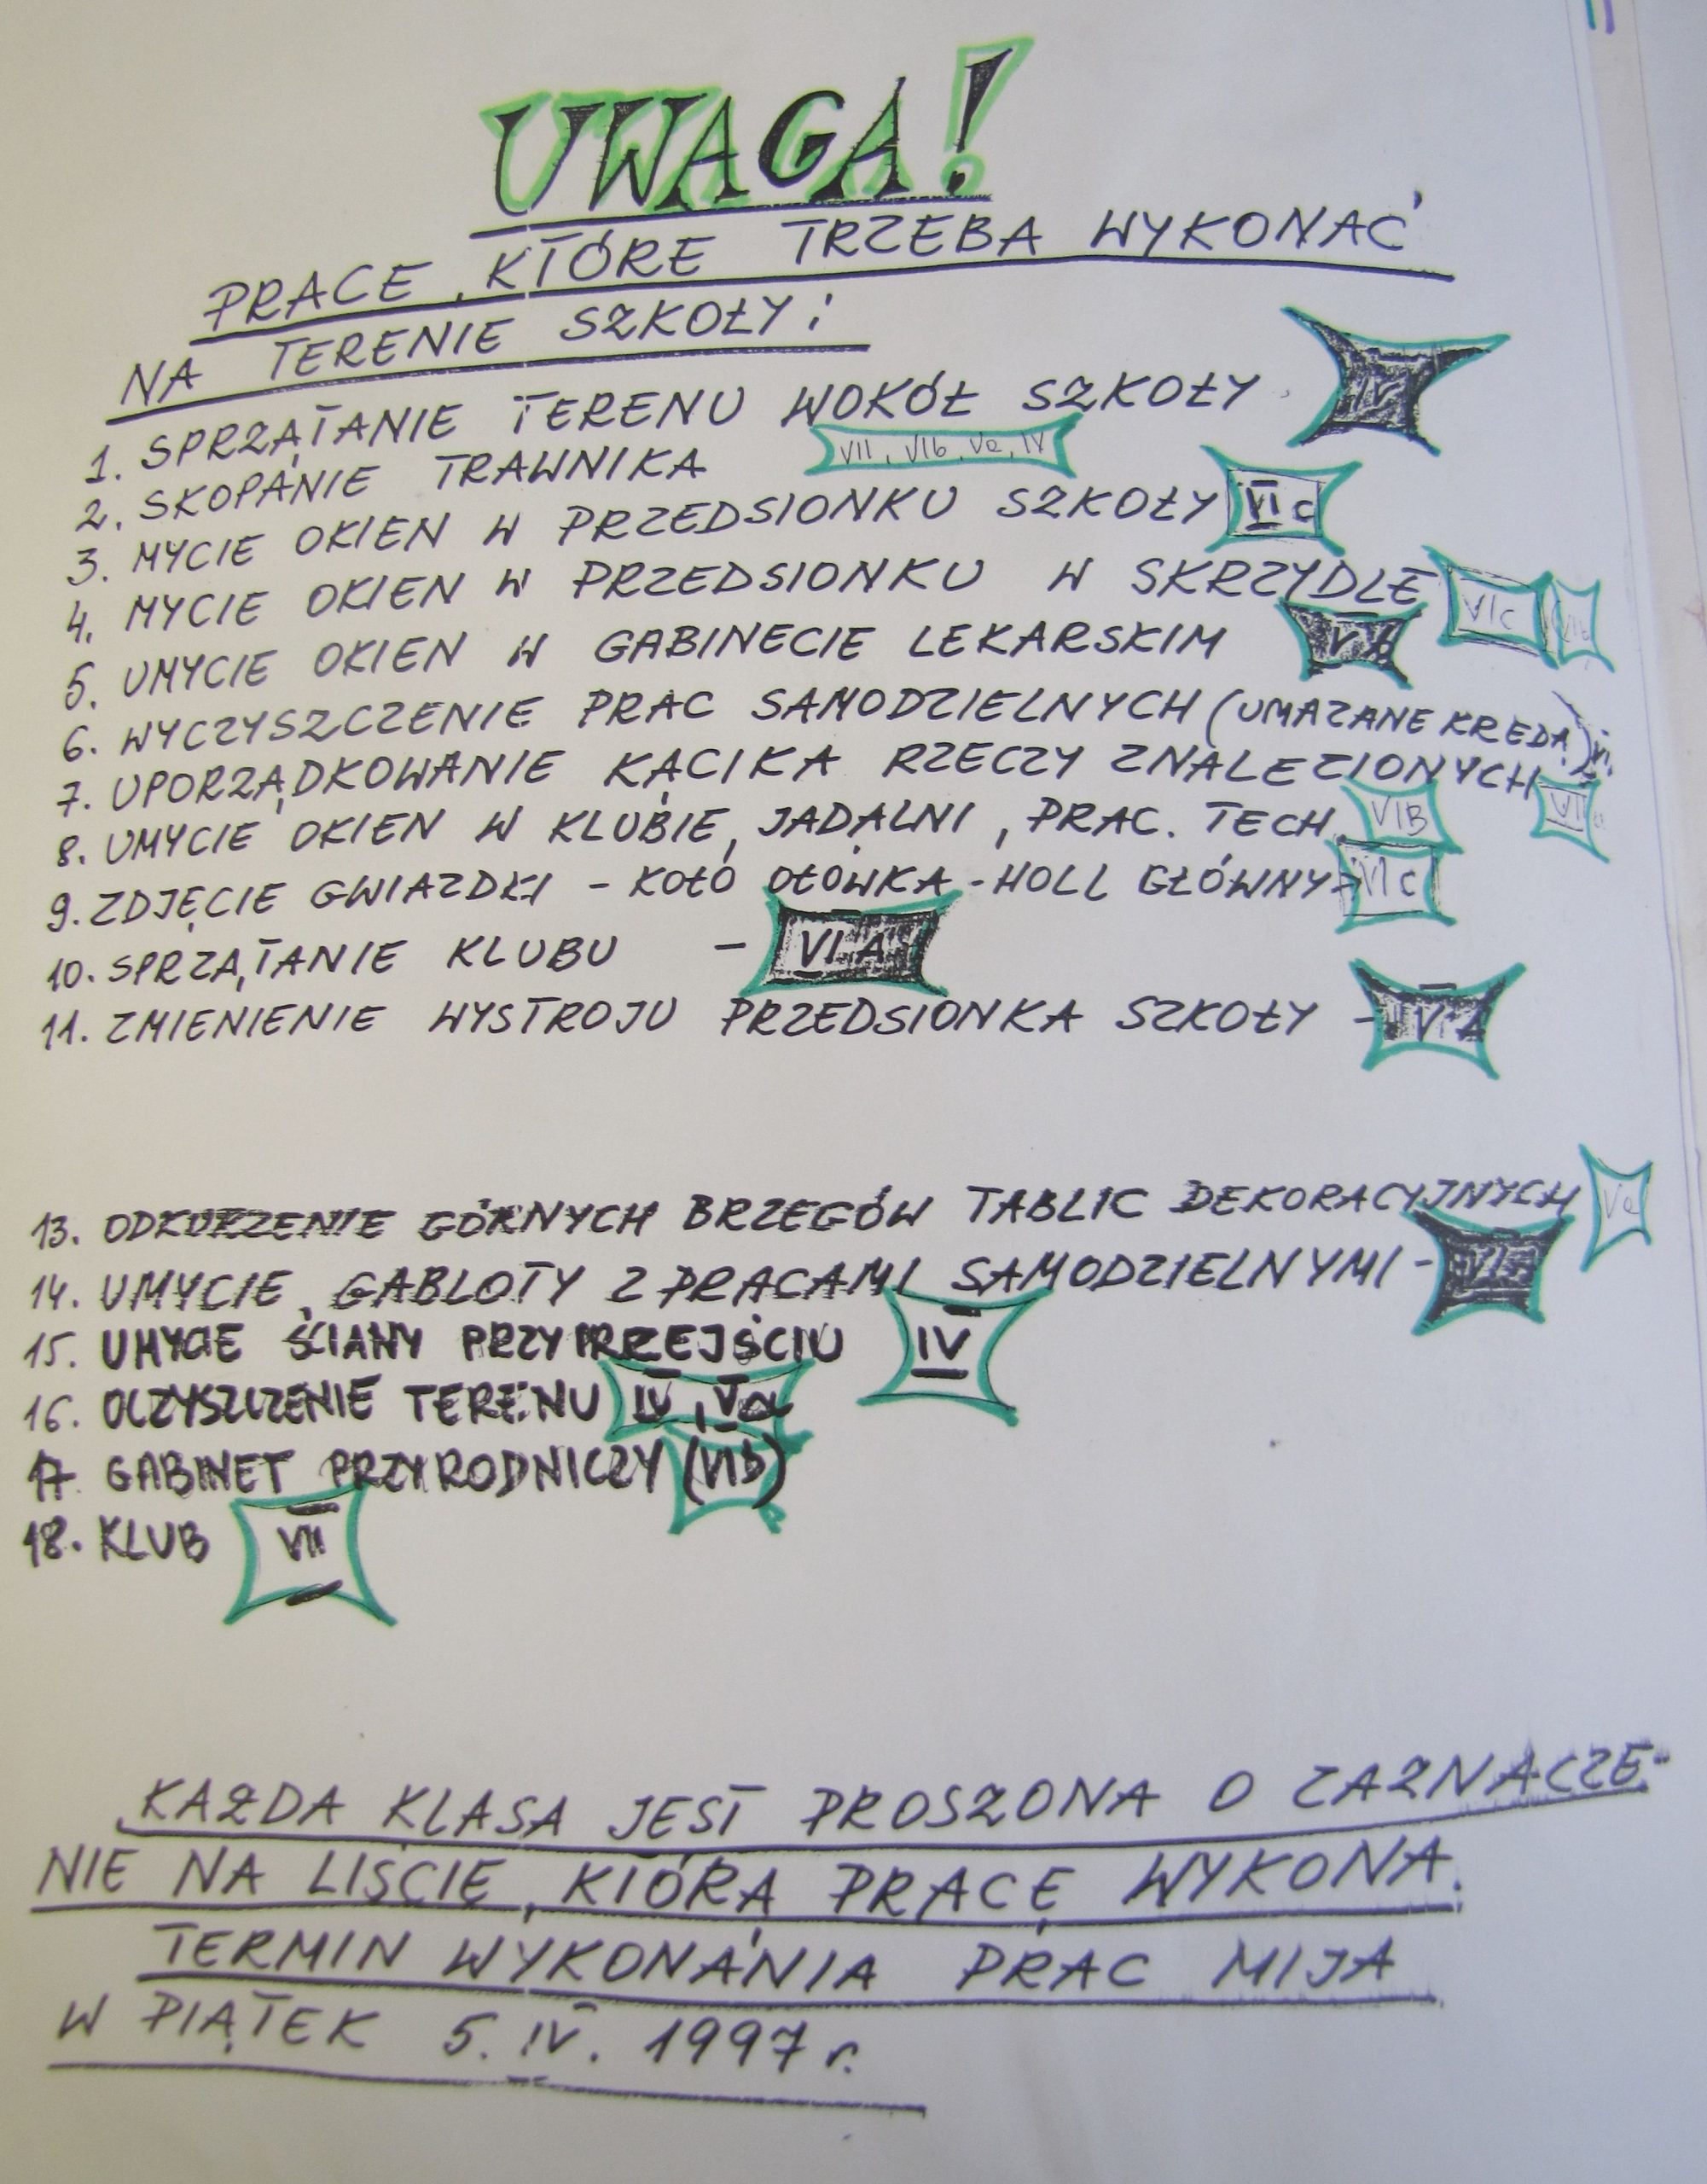 UWAGA!
PRACE, KTÓRE TRZEBA WYKONAĆ
NA TERENIE SZKOŁY:
1. SPRZĄTANIE TERENU WOKÓŁ SZKOŁY IV
2. SKOPANIE TRAWNIKA VII, VIb, Va, IV
3. MYCIE OKIEN W PRZEDSIONKU SZKOŁY VI c
4. MYCIE OKIEN W PRZEDSIONKU W SKRZYDLE VIc
5. UMYCIE OKIEN W GABINECIE LEKARSKIM V b
6. WYCZYSZCZENIE PRAC SAMODZIELNYCH (UMAZANE KREDĄ)
7. UPORZĄDKOWANIE KĄCIKA RZECZY ZNALEZIONYCH
8. UMYCIE OKIEN W KLUBIE, JADALNI, PRAC. TECH. VIB
9. ZDJĘCIE GWIAZDKI - KOŁO OŁÓWKA - HOLL GŁÓWNY VI c
10. SPRZĄTANIE KLUBU - VI A
11. ZMIENIENIE WYSTROJU PRZEDSIONKA SZKOŁY -
13. ODKURZENIE GÓRNYCH BRZEGÓW TABLIC DEKORACYJNYCH Va
14. UMYCIE GABLOTY Z PRACAMI SAMODZIELNYMI -
15. UMYCIE ŚCIANY PRZY PRZEJŚCIU IV
16. OCZYSZCZENIE TERENU IV, Va
17. GABINET PRZYRODNICZY (VIb)
18. KLUB VII
KAŻDA KLASA JEST PROSZONA O ZAZNACZE-
NIE NA LIŚCIE, KTÓRĄ PRACĘ WYKONA.
TERMIN WYKONANIA PRAC MIJA
W PIĄTEK 5. IV. 1997 r.